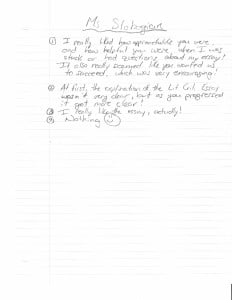 Ms.
① I really liked how approachable you were
and how helpful you were, when I was
stuck or had questions about my essay!
It also really seemed like you wanted us
to succeed, which was very encouraging!
② At first, the explanation of the Lit Crit. Essay
wasn't very clear, but as you progressed
it got more clear!
③ I really like the essay, actually!
④ Nothing